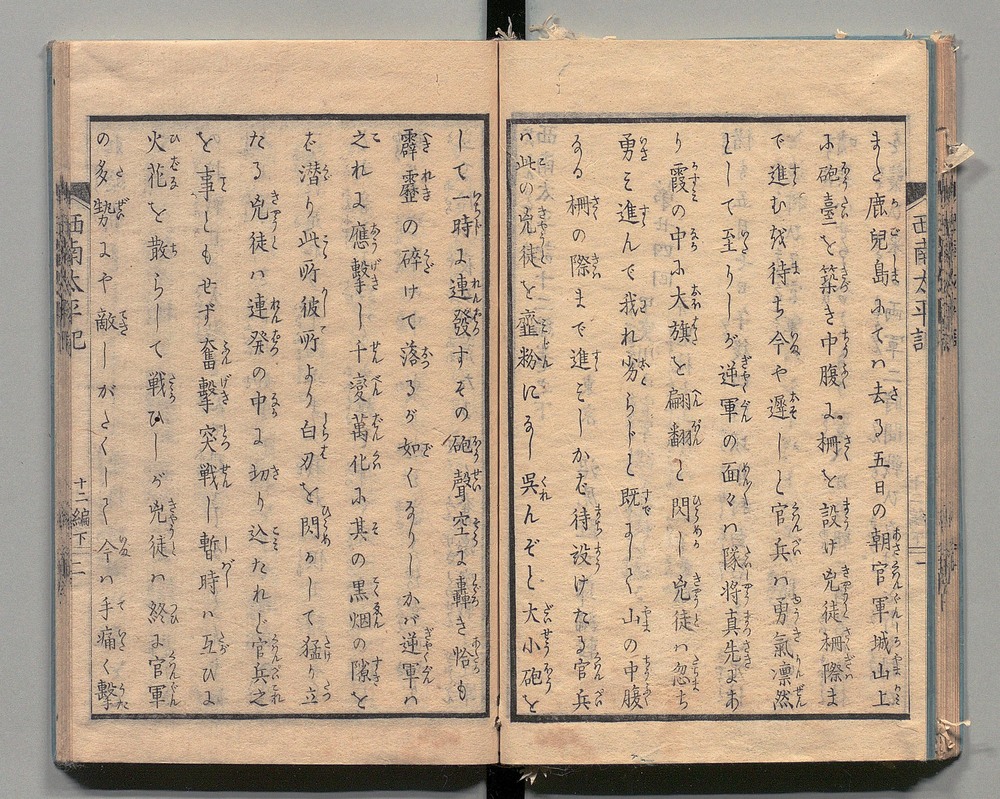 また鹿兒島ふてハ去る五日の朝官軍城山上
ふ砲臺を築き中腹よ柵を設け兇徒柵際ま
で進む越待ち今や遲しと官兵ハ勇氣凛然
として至りしが逆軍の面々ハ隊将真先よ
り霞の中ふ大旗を翩翻と閃し兇徒ハ忽ち
勇み進んで我れ劣らじと既よして山の中腹
なる柵の際まで進みしかバ待設けたる官兵
ハ此の兇徒を韲粉になし呉んぞと大小砲を
して一時よ連發すその砲聲空よ轟き恰も
霹靂の碎けて落るが如くなりしかバ逆軍ハ
之れよ應撃し千變萬化ふ其の黒烟の隙を
バ潜り此所彼所より白刃を閃かして猛り立
たる兇徒ハ連発の中よ切り込たれど官兵之
を事ともせず奮撃突戦し暫時ハ互ひよ
火花を散らして戦ひしが兇徒ハ終よ官軍
の多勢よや敵しがたくして今ハ手痛く擊
西南太平記
十二編下
一
西南太平記
十二編下
二